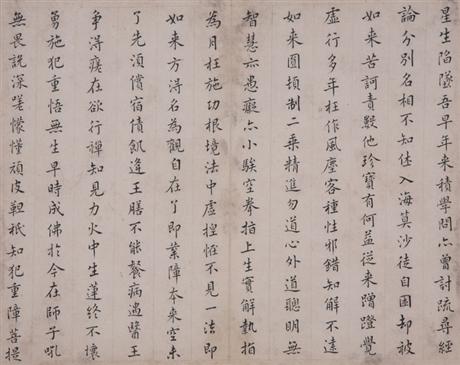 星生陷墜吾早年来積學問亦曾討疏尋經
論分別名相不知休入海筭沙徒自困却被
如来苦訶責數他珎寶有何益従来蹭蹬覺
虛行多年枉作風塵客種性邪錯知解不達
如来圓頓制二乗精進勿道心外道聰明無
智慧亦愚癡亦小騃空拳指上生實解執指
為月枉施功根境法中虛揑恠不見一法即
如来方得名為觀自在了即業障本来空未
了先湏償宿債飢逢王膳不能餐病遇醫王
争得瘥在欲行禪知見力火中生蓮終不壊
勇施犯重悟無生早時成佛於今在師子吼
無畏說深嗟懞懂頑皮靼祇知犯重障菩提